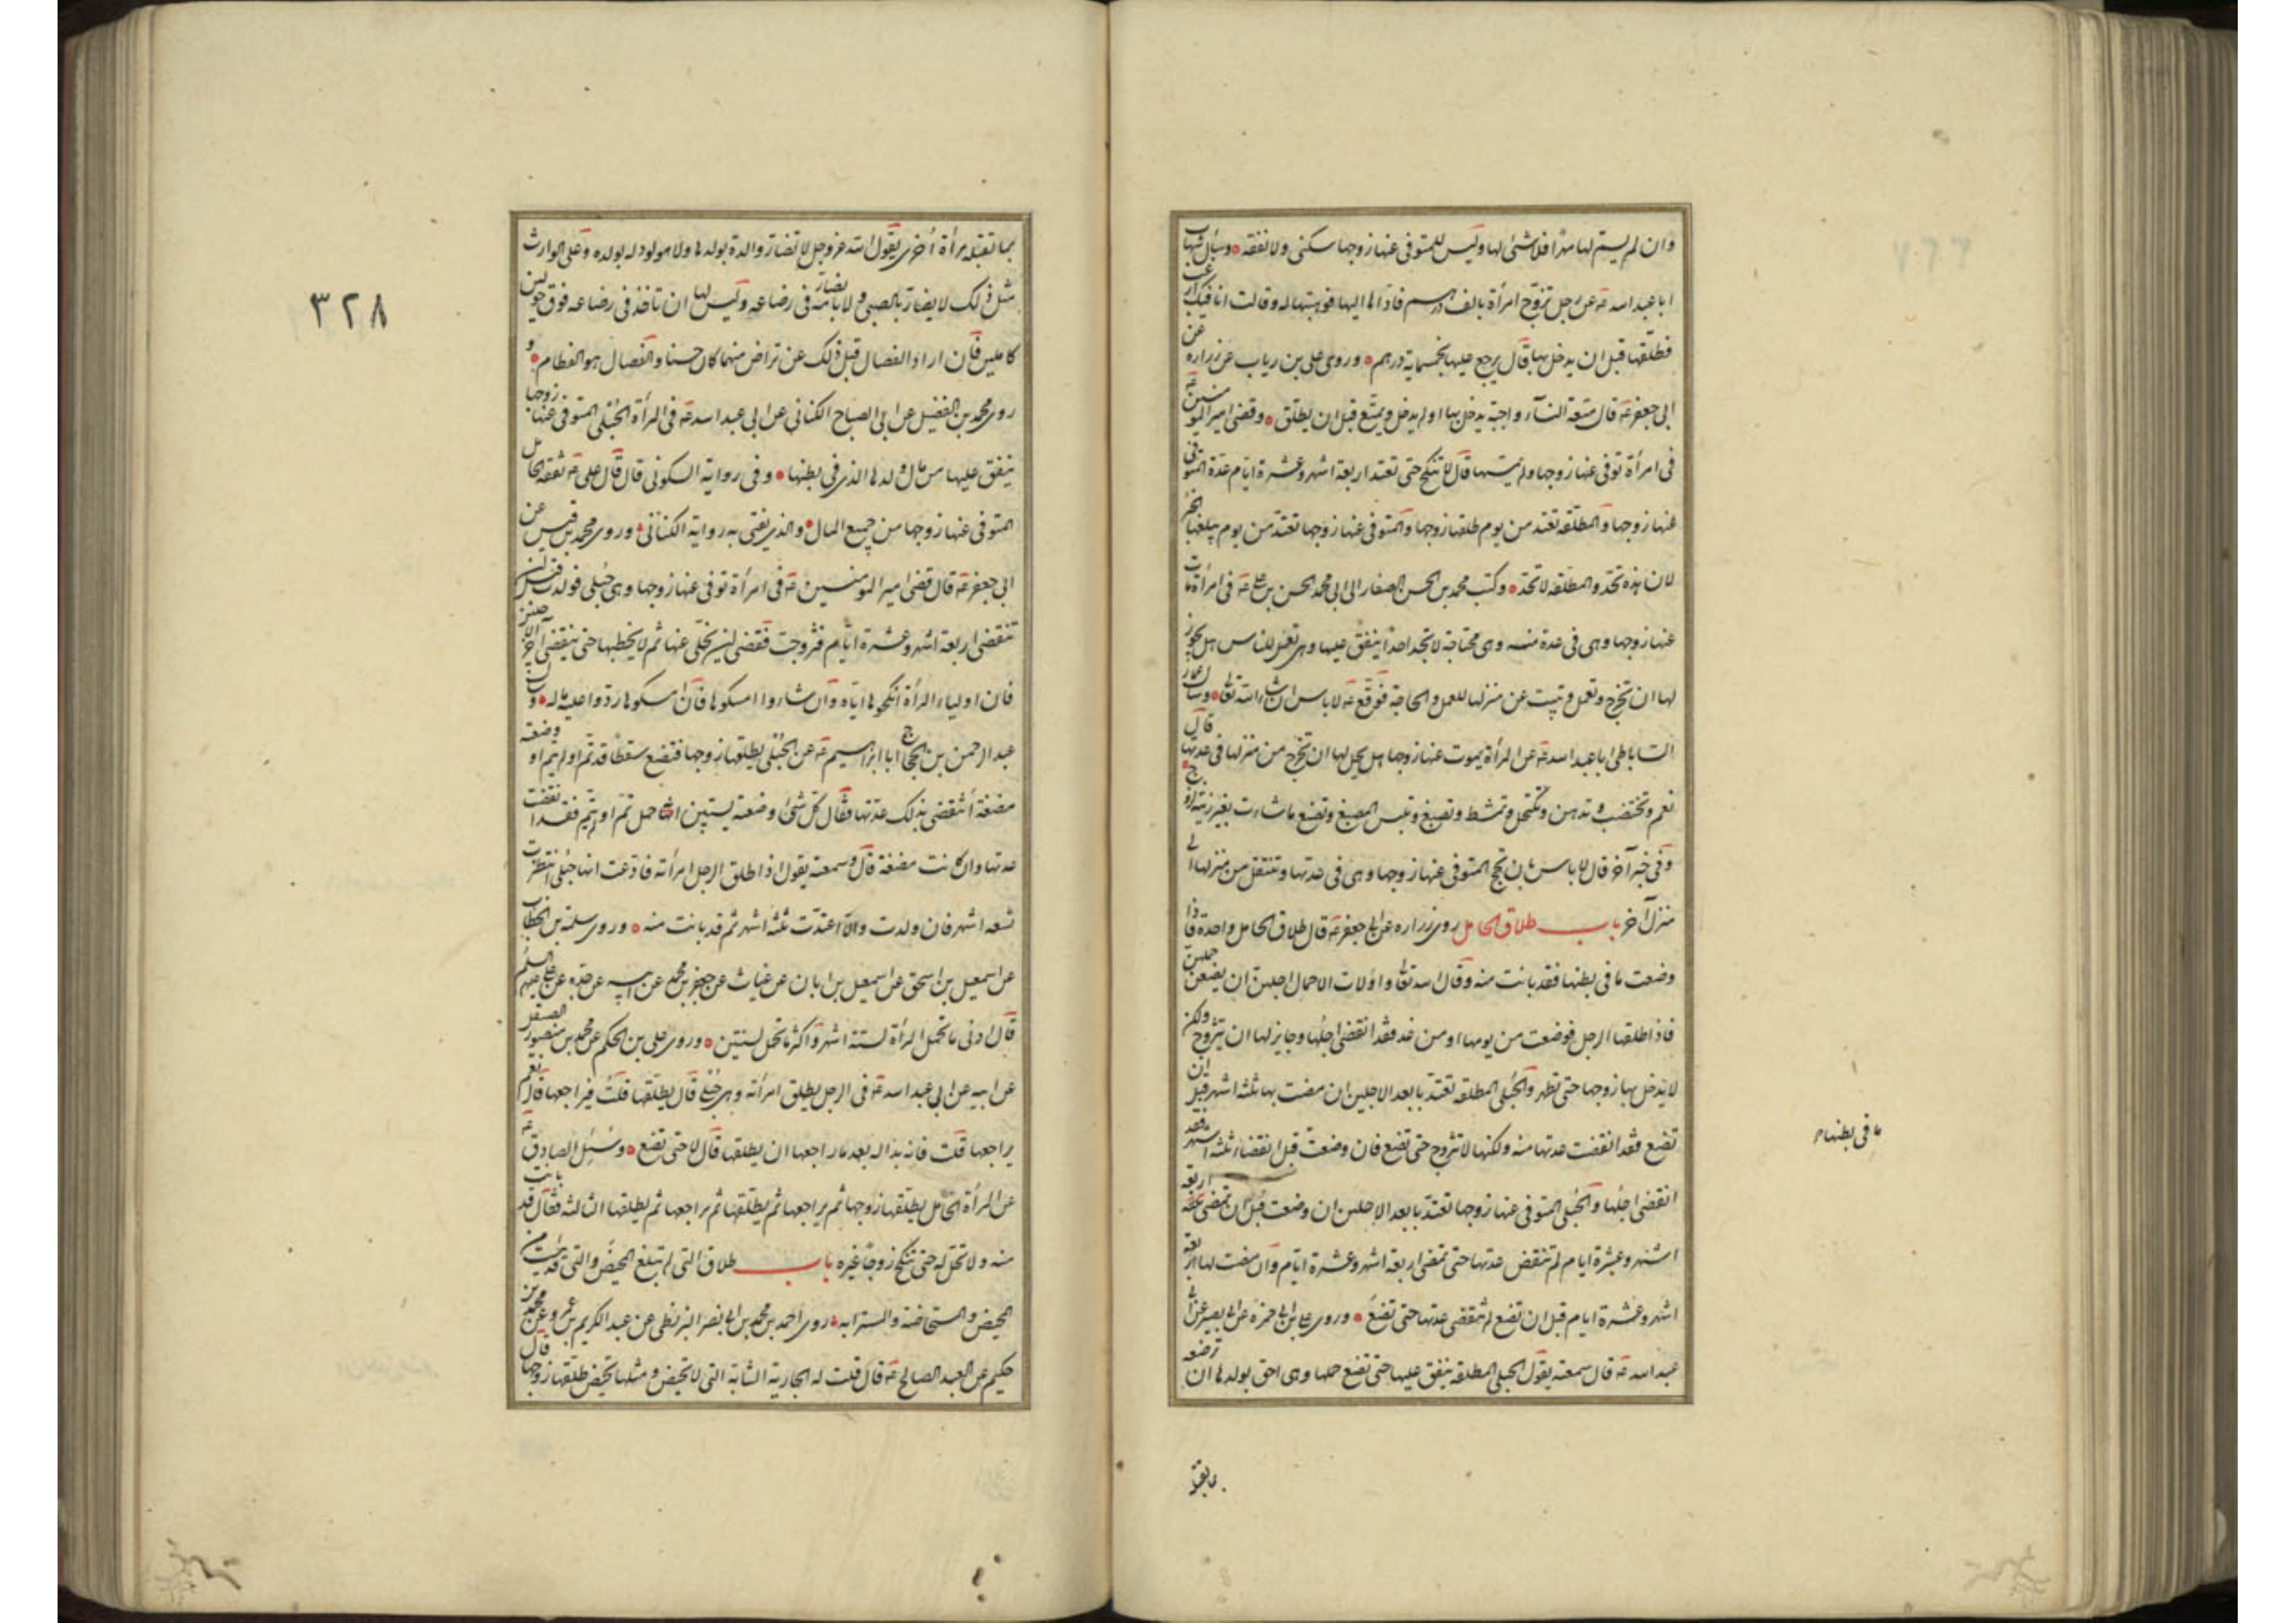 وان لم يسم لها مهرا فلا شئ لها وليس للمتوفى عنها زوجها سكنى ولا نفقة وسأل شهاب
ابا عبد اسه عه عن رجل تزوج امرأة بالف درهم فادّاها اليها فوهبتها له وقالت انا فيك ارغب
فطلقها قبل ان يدخل بها قال يرجع عليها بخمسماية درهم وروى على بن رياب عن زراره عن
ابى جعفر عه قال متعة النساء واجبة يدخل بها او لم يدخل ويمتع قبل ان يطلق وقضى امير المؤمنين عه
فى امرأة توفى عنها زوجها ولم يمسها قال لا تنكح حتى تعتد اربعة اشهر وعشرة ايام عدة المتوفى
عنها زوجها والمطلقة تعتد من يوم طلقها زوجها والمتوفى عنها زوجها تعتد من يوم يبلغها الخبر
لان هذه تحد والمطلقة لا تحد وكتب محمد بن الحسن الصفار الى ابى محمد الحسن بن على عه فى امرأة مات
عنها زوجها وهى فى عدة منه وهى محتاجة لا تجد احدا ينفق عليها وهى تعمل للناس هل يجوز
لها ان تخرج وتعمل وتبيت عن منزلها للعمل والحاجة فوقع عه لا باس ان شاء الله تعالى وسأل عمار
الساباطى ابا عبد اسه عه عن المرأة يموت عنها زوجها هل يحل لها ان تخرج من منزلها فى عدتها قال
نعم وتختضب وتدهن وتكتحل وتمشط وتصبغ وتلبس المصبغ وتصنع ما شاءت بغير زينة لزوج
وفى خبر آخر قال لا باس بان تحج المتوفى عنها زوجها وهى فى عدتها وتنتقل من منزل الى
منزل آخر باب طلاق الحامل روى زراره عن ابى جعفر عه قال طلاق الحامل واحدة فاذا
وضعت ما فى بطنها فقد بانت منه وقال اسه تعالى واولات الاحمال اجلهن ان يضعن حملهن
فاذا طلقها الرجل فوضعت من يومها او من غد فقد انقضى اجلها وجايز لها ان تتزوج ولكن
لا يدخل بها زوجها حتى تطهر والحبلى المطلقة تعتد بابعد الاجلين ان مضت بها ثلثة اشهر قبل ان
تضع فقد انقضت عدتها منه ولكنها لا تتزوج حتى تضع فان وضعت قبل انقضاء ثلثة اشهر فقد
انقضى اجلها والحبلى المتوفى عنها زوجها تعتد بابعد الاجلين ان وضعت قبل ان تمضى اربعة
اشهر وعشرة ايام لم تنقض عدتها حتى تمضى اربعة اشهر وعشرة ايام وان مضت لها اربعة
اشهر وعشرة ايام قبل ان تضع لم تنقض عدتها حتى تضع وروى على بن ابى حمزه عن ابى بصير عن ابى
عبد اسه عه قال سمعته يقول الحبلى المطلقة ينفق عليها حتى تضع حملها وهى احق بولدها ان ترضعه
ما فى بطنها
بما تقبله
٣٢٨
بما تقبله امرأة أخرى يقول الله عز وجل لا تضار والدة بولدها ولا مولود له بولده وعلى الوارث
مثل ذلك لا يضار بالصبى ولا يضار بامه فى رضاعه وليس لها ان تاخذ فى رضاعه فوق حولين
كاملين فان ارادا الفصال قبل ذلك عن تراض منهما كان حسنا والفصال هو الفطام و
روى محمد بن الفضيل عن ابى الصباح الكنانى عن ابى عبد اسه عه فى المرأة الحبلى المتوفى عنها زوجها
ينفق عليها من مال ولدها الذى فى بطنها وفى رواية السكونى قال قال على عه نفقة الحامل
المتوفى عنها زوجها من جميع المال والذى يفتى به رواية الكنانى وروى محمد بن قيس عن
ابى جعفر عه قال قضى امير المؤمنين عه فى امرأة توفى عنها زوجها وهى حبلى فولدت قبل ان
تنقضى اربعة اشهر وعشرة ايام فتزوجت فقضى ان يخلى عنها ثم لا يخطبها حتى ينقضى آخر الاجلين
فان اولياء المرأة انكحوها اياه وان شاءوا امسكوها فان امسكوها ردوا عليه ماله وسأل
عبد الرحمن بن الحجاج ابا ابراهيم عه عن الحبلى يطلقها زوجها فتضع سقطا قد تم او لم يتم او وضعته
مضغة أتنقضى بذلك عدتها فقال كل شئ وضعته يستبين انه حمل تم او لم يتم فقد انقضت
عدتها وان كانت مضغة قال وسمعته يقول اذا طلق الرجل امرأته فادعت انها حبلى انتظرت
تسعه اشهر فان ولدت والا اعتدت ثلثه اشهر ثم قد بانت منه وروى سلمة بن الخطاب
عن اسمعيل بن اسحق عن اسمعيل بن ابان عن غياث عن جعفر بن محمد عن ابيه عن جده عن على عليهم السلم
قال ادنى ما تحمل المرأة لستة اشهر واكثر ما تحمل لسنتين وروى على بن الحكم عن محمد بن منصور الصيقل
عن ابيه عن ابى عبد اسه عه فى الرجل يطلق امرأته وهى حبلى قال يطلقها قلت فيراجعها قال نعم
يراجعها قلت فانه بدا له بعد ما راجعها ان يطلقها قال لا حتى تضع وسئل الصادق عه
عن المرأة الحامل يطلقها زوجها ثم يراجعها ثم يطلقها ثم يراجعها ثم يطلقها الثالثه فقال قد بانت
منه ولا تحل له حتى تنكح زوجا غيره باب طلاق التى لم تبلغ المحيض والتى قد يئست من
المحيض والمستحاضة والمسترابه روى احمد بن محمد بن ابى نصر البزنطى عن عبد الكريم بن عمرو عن محمد بن
حكيم عن العبد الصالح عه قال قلت له الجارية الشابة التى لا تحيض ومثلها تحيض طلقها زوجها قال